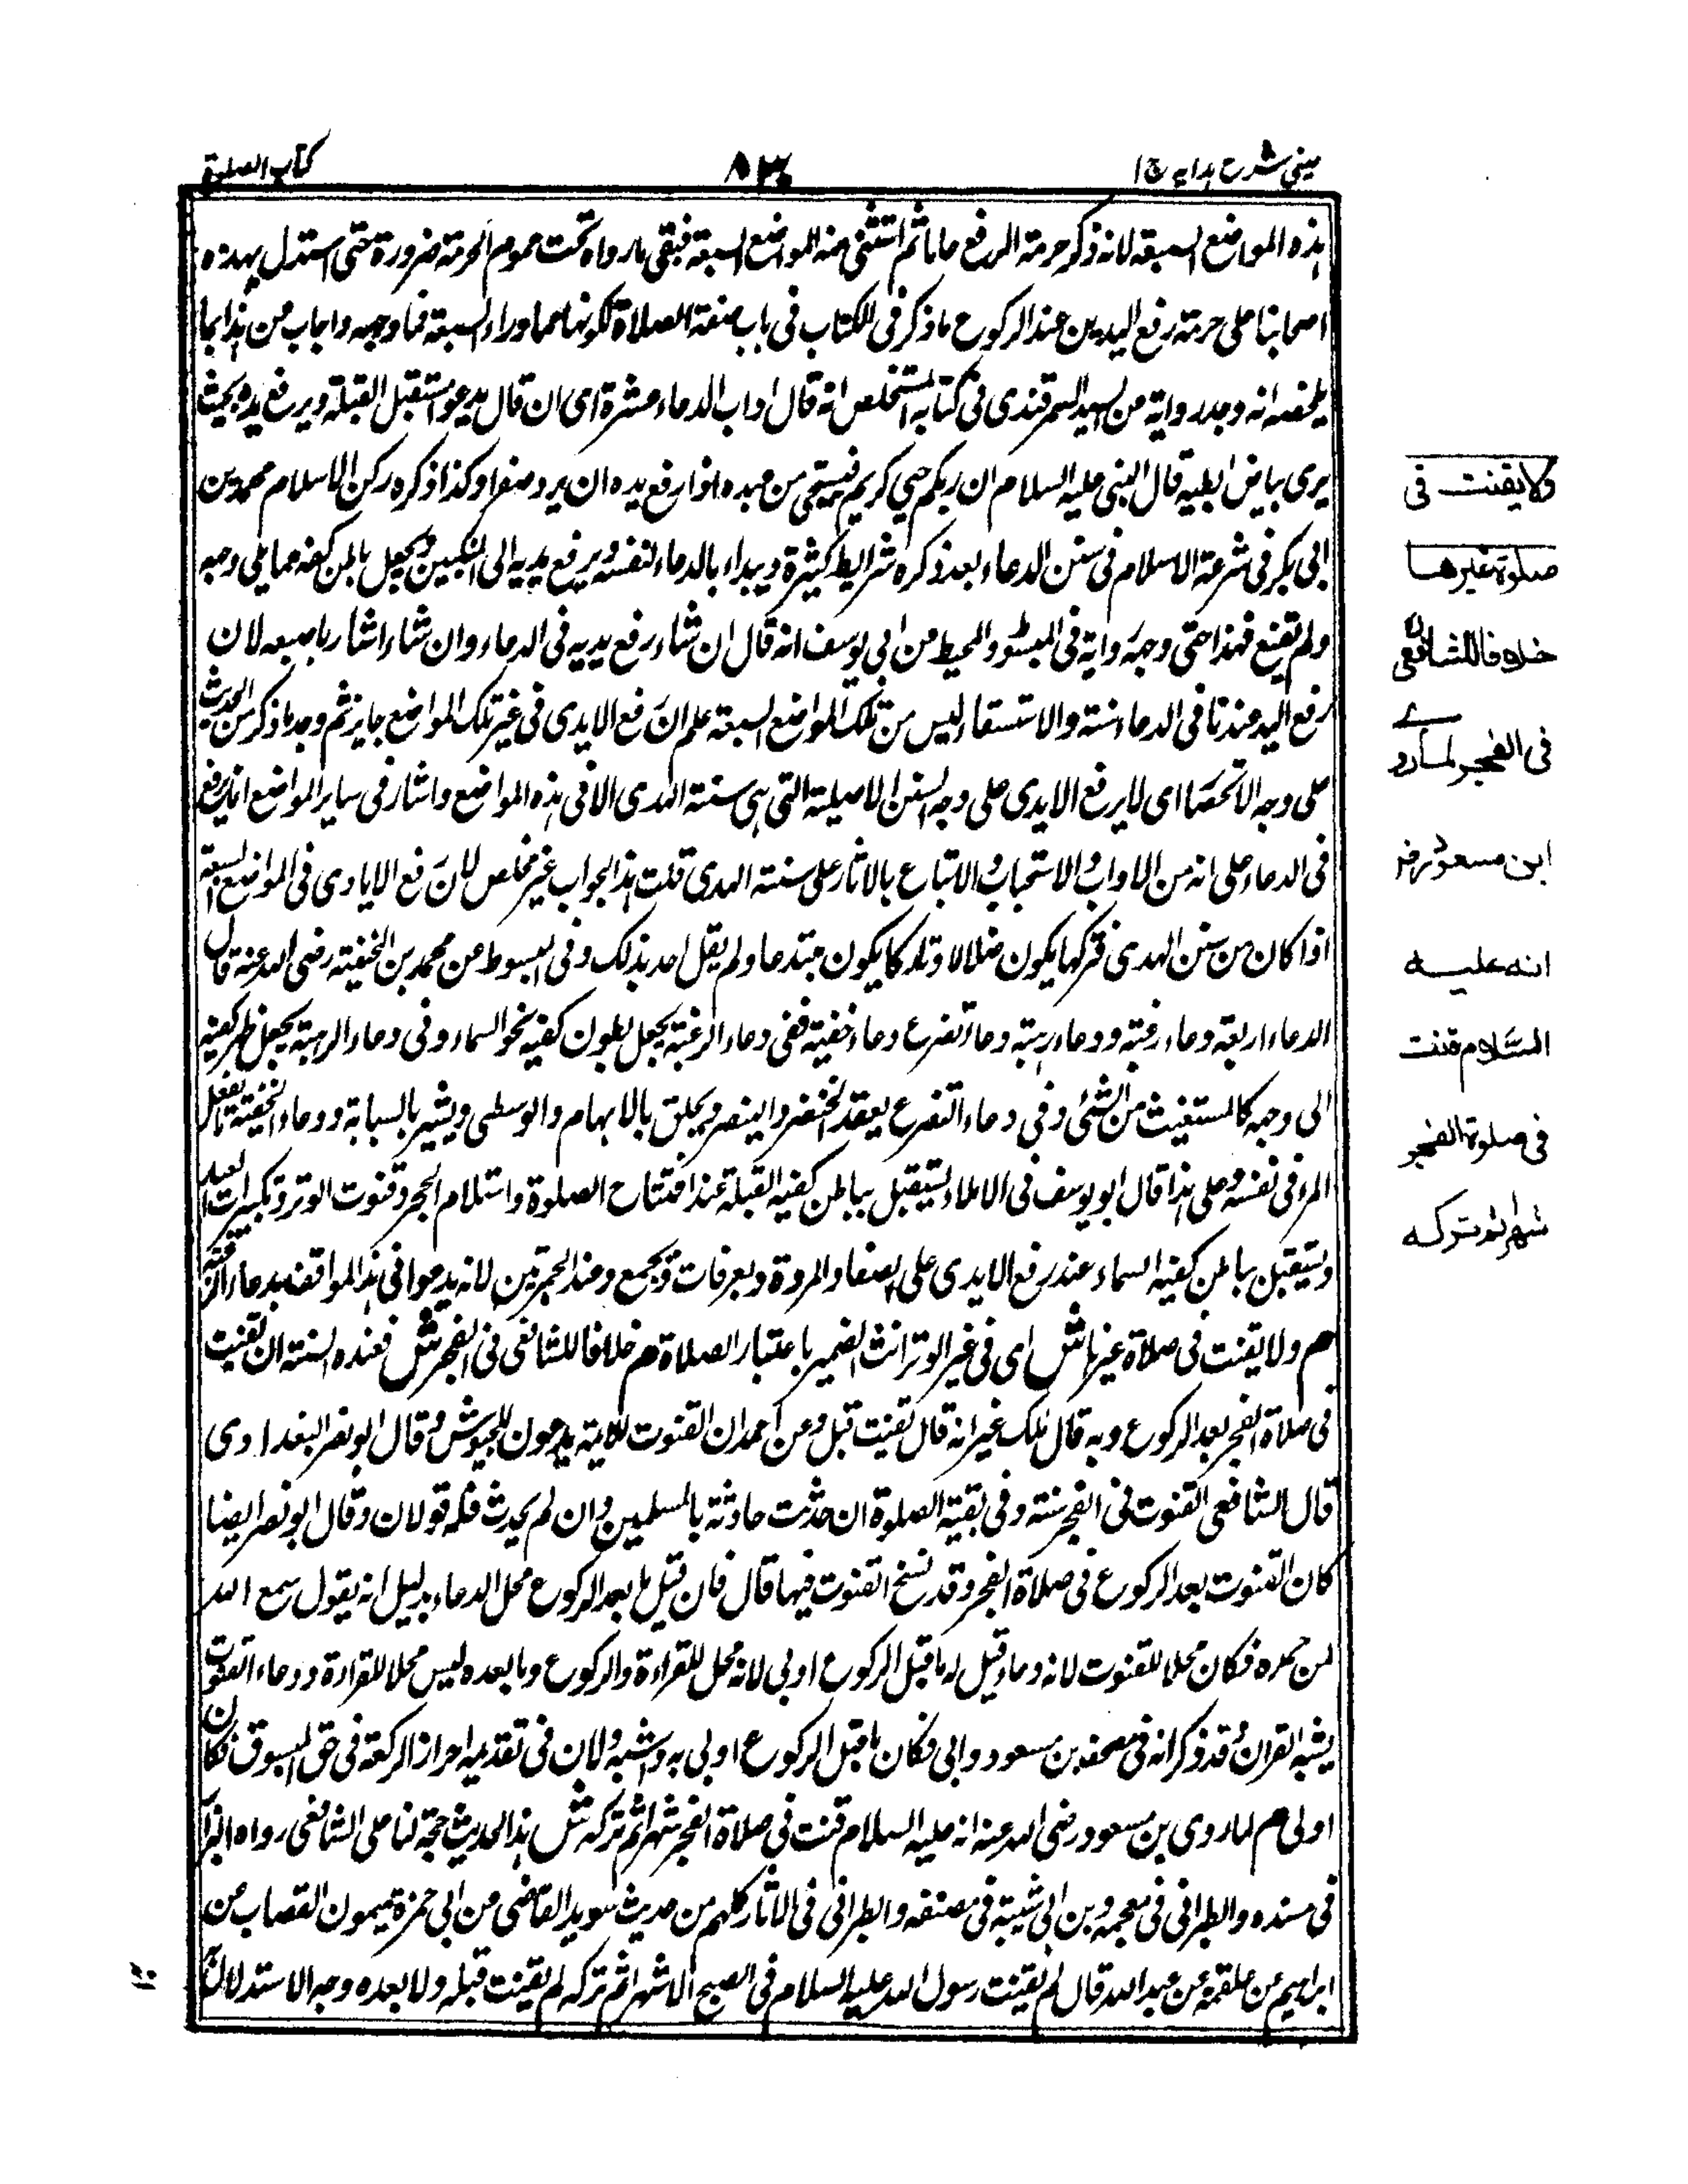 عيني شرح هدايه ج ا
٨٣٠
كتاب الصلوة
هذه المواضع السبعة لانه ذكر حرمة الرفع عاما ثم استثنى منه المواضع السبعة فبقي ما رواه تحت عموم الحرمة ضرورة حتى استدل بهذه
اصحابنا على حرمة رفع اليدين عند الركوع ما ذكر في الكتاب في باب صفة الصلاة لكونها مما وراء السبعة فما وجهه واجاب من هذا بما
يلخصه انه وجد رواية من السيد السمرقندى في كتابه المستخلص انه قال اداب الدعاء عشرة اى ان قال يدعو مستقبل القبلة ويرفع يديه بحيث
يرى بياض ابطيه قال النبي عليه السلام ان ربكم حي كريم فيستحيى من عبده اذا رفع يده ان يرد صفرا وكذا ذكره ركن الاسلام محمد بن
ابي بكر في شرعة الاسلام في سنن الدعاء بعد ذكره شرايط كثيرة ويبداء بالدعاء لنفسه ويرفع يديه الى المنكبين ويجعل باطن كفه مما يلي وجهه
ولم تقنع فهذا حتى وجد رواية في المبسوط والمحيط من ابي يوسف انه قال ان شاء رفع يديه في الدعاء وان شاء اشار باصبعه لان
رفع اليد عندنا في الدعاء سنة والاستسقاء ليس من تلك المواضع السبعة علم ان رفع الايدى في غير تلك المواضع جايز ثم وجد ما ذكر من الحديث
على وجه الانحصار اى لا يرفع الايدى على وجه السنن الاصلية التي هي سنة الهدى الا في هذه المواضع واشار في ساير المواضع انما يرفع
في الدعاء على انه من الاداب والاستحباب والاتباع بالاثار على سنة الهدى قلت هذا الجواب غير مخلص لان رفع الايادى في المواضع السبعة
اذا كان من سنن الهدى فتركها يكون ضلالا وتاركا يكون مبتدعا ولم يقل احد بذلك وفي المبسوط من محمد بن الحنفية رضى الله عنه قال
الدعاء اربعة دعاء رغبة ودعاء رهبة ودعاء تضرع ودعاء خفية ففي دعاء الرغبة يجعل بطون كفيه نحو السماء وفي دعاء الرهبة يجعل ظهر كفيه
الى وجهه كالمستغيث من الشئ وفي دعاء التضرع يعقد الخنصر والبنصر ويحلق بالابهام والوسطى ويشير بالسبابة ودعاء الخفية ما يفعل
المرء في نفسه وعلى هذا قال ابو يوسف في الاملاء يستقبل بباطن كفيه القبلة عند افتتاح الصلوة واستلام الحجر وقنوت الوتر وتكبيرات العيد
ويستقبل بباطن كفيه السماء عند رفع الايدى على الصفا والمروة وبعرفات وبجمع وعند الجمرتين لانه يدعوا في هذا المواقف بدعاء الرغبة
م ولا يقنت في صلاة غيرها ش اى في غير الوتر انث الضمير باعتبار الصلاة م خلافا للشافعى في الفجر ش فعنده السنة ان يقنت
في صلاة الفجر بعد الركوع وبه قال ملك غير انه قال يقنت قبل وعن احمد ان القنوت للائمة يدعون للجيوش وقال ابو نصر البغدادى
قال الشافعى القنوت في الفجر سنة وفي بقية الصلوة ان حدثت حادثة بالمسلمين وان لم يحدث فله قولان وقال ابو نصر ايضا
كان القنوت بعد الركوع في صلاة الفجر وقد نسخ القنوت فيها قال فان قيل بل بعد الركوع محل الدعاء بدليل انه يقول سمع الله
لمن حمده فكان محلا للقنوت لانه دعاء قيل له ما قبل الركوع اولى لانه محل للقراءة والركوع وما بعده ليس محلا للقراءة ودعاء القنوت
يشبه القران وقد ذكر انه في مصحف بن مسعود وابى فكان ما قبل الركوع اولى به واشبه ولان في تقديمه احراز الركعة في حق المسبوق فكان
اولى م لما روى بن مسعود رضى الله عنه انه عليه السلام قنت في صلاة الفجر شهرا ثم تركه ش هذا الحديث حجة لنا على الشافعى رواه البزار
في مسنده والطبراني في معجمه وبن ابي شيبة في مصنفه والطبراني في الاثار كلهم من حديث سويد القاضى من ابي حمزة ميمون القصاب من
ابراهيم عن علقمة عن عبد الله قال لم يقنت رسول الله عليه السلام في الصبح الا شهرا ثم تركه لم يقنت قبله ولا بعده وجه الاستدلال
ولا يقنت في
صلوة غيرها
خلافا للشافعى
في الفجر لما روى
ابن مسعود رض
انه عليه
السلام قنت
في صلوة الفجر
شهرا ثم تركه